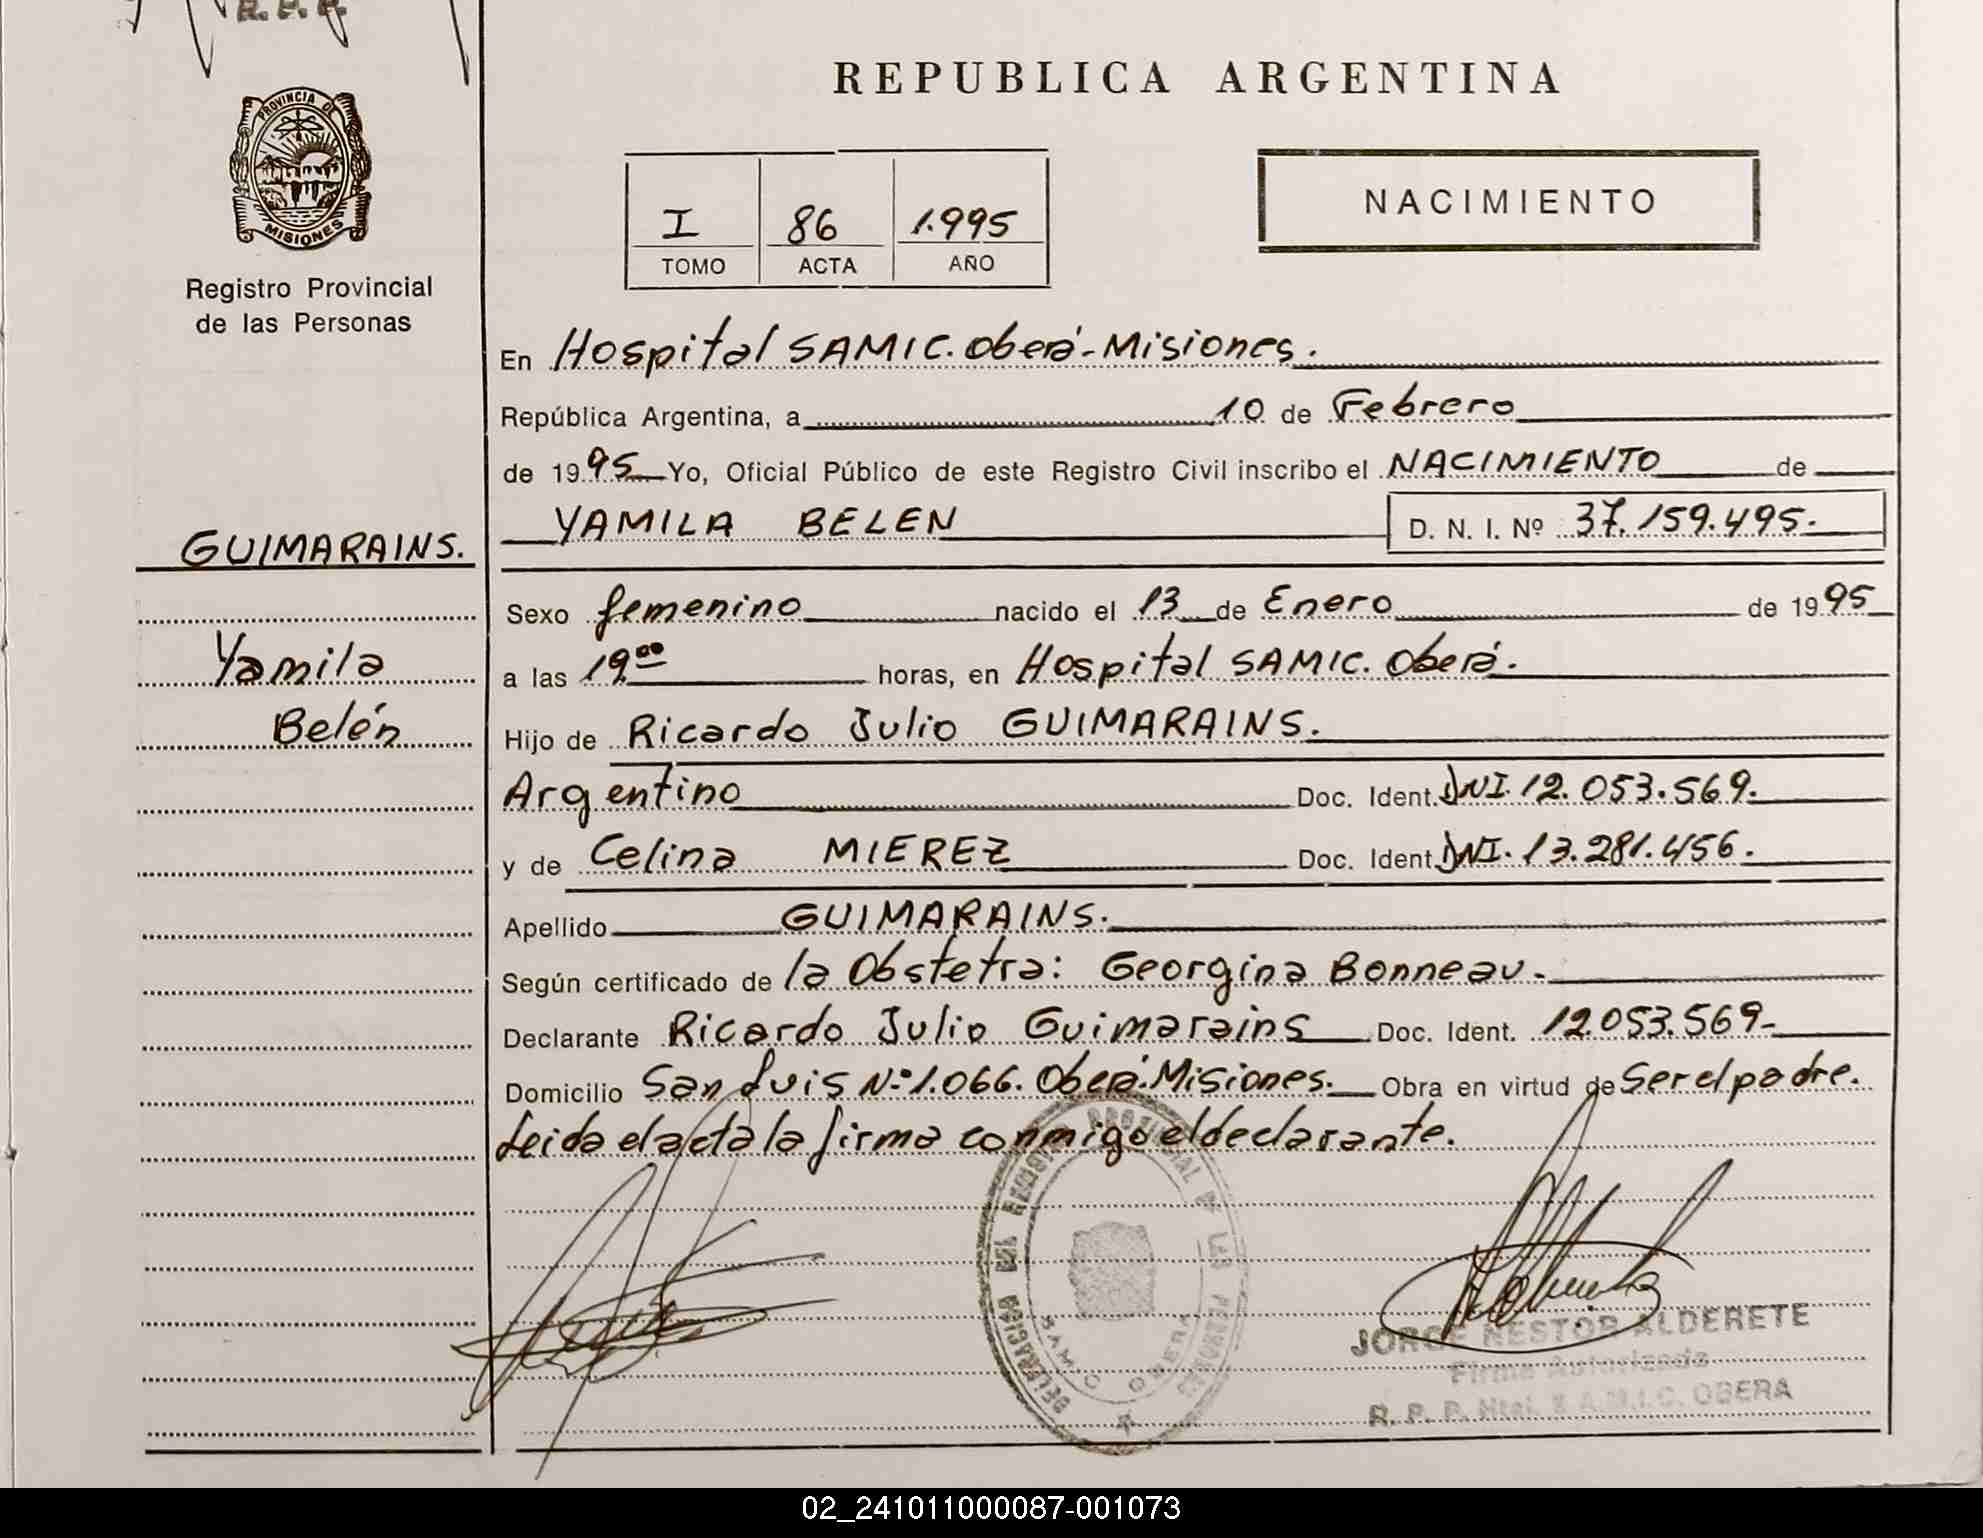 R. P. P.
PROVINCIA DE
MISIONES
Registro Provincial
de las Personas
REPUBLICA ARGENTINA
I 86 1.995
TOMO ACTA AÑO
NACIMIENTO
En Hospital SAMIC. Oberá-Misiones.
República Argentina, a 10 de Febrero
de 1995 Yo, Oficial Público de este Registro Civil inscribo el NACIMIENTO de
YAMILA BELEN D. N. I. Nº 37.159.495.
GUIMARAINS.
Yamila
Belén
Sexo femenino nacido el 13 de Enero de 1995
a las 19.00 horas, en Hospital SAMIC. Oberá.
Hijo de Ricardo Julio GUIMARAINS.
Argentino Doc. Ident. DNI. 12.053.569.
y de Celina MIEREZ Doc. Ident. DNI. 13.281.456.
Apellido GUIMARAINS.
Según certificado de la Obstetra: Georgina Bonneau.
Declarante Ricardo Julio Guimarains Doc. Ident. 12.053.569-
Domicilio San Luis N.º 1.066. Oberá. Misiones. Obra en virtud de Ser el padre.
Leida el acta la firma conmigo el declarante.
DELEGACION DEL REGISTRO PROVINCIAL DE LAS PERSONAS
SAMIC OBERA
JORGE NESTOR ALDERETE
Firma Autorizada
R. P. P. Htal. S.A.M.I.C. OBERA
02_241011000087-001073